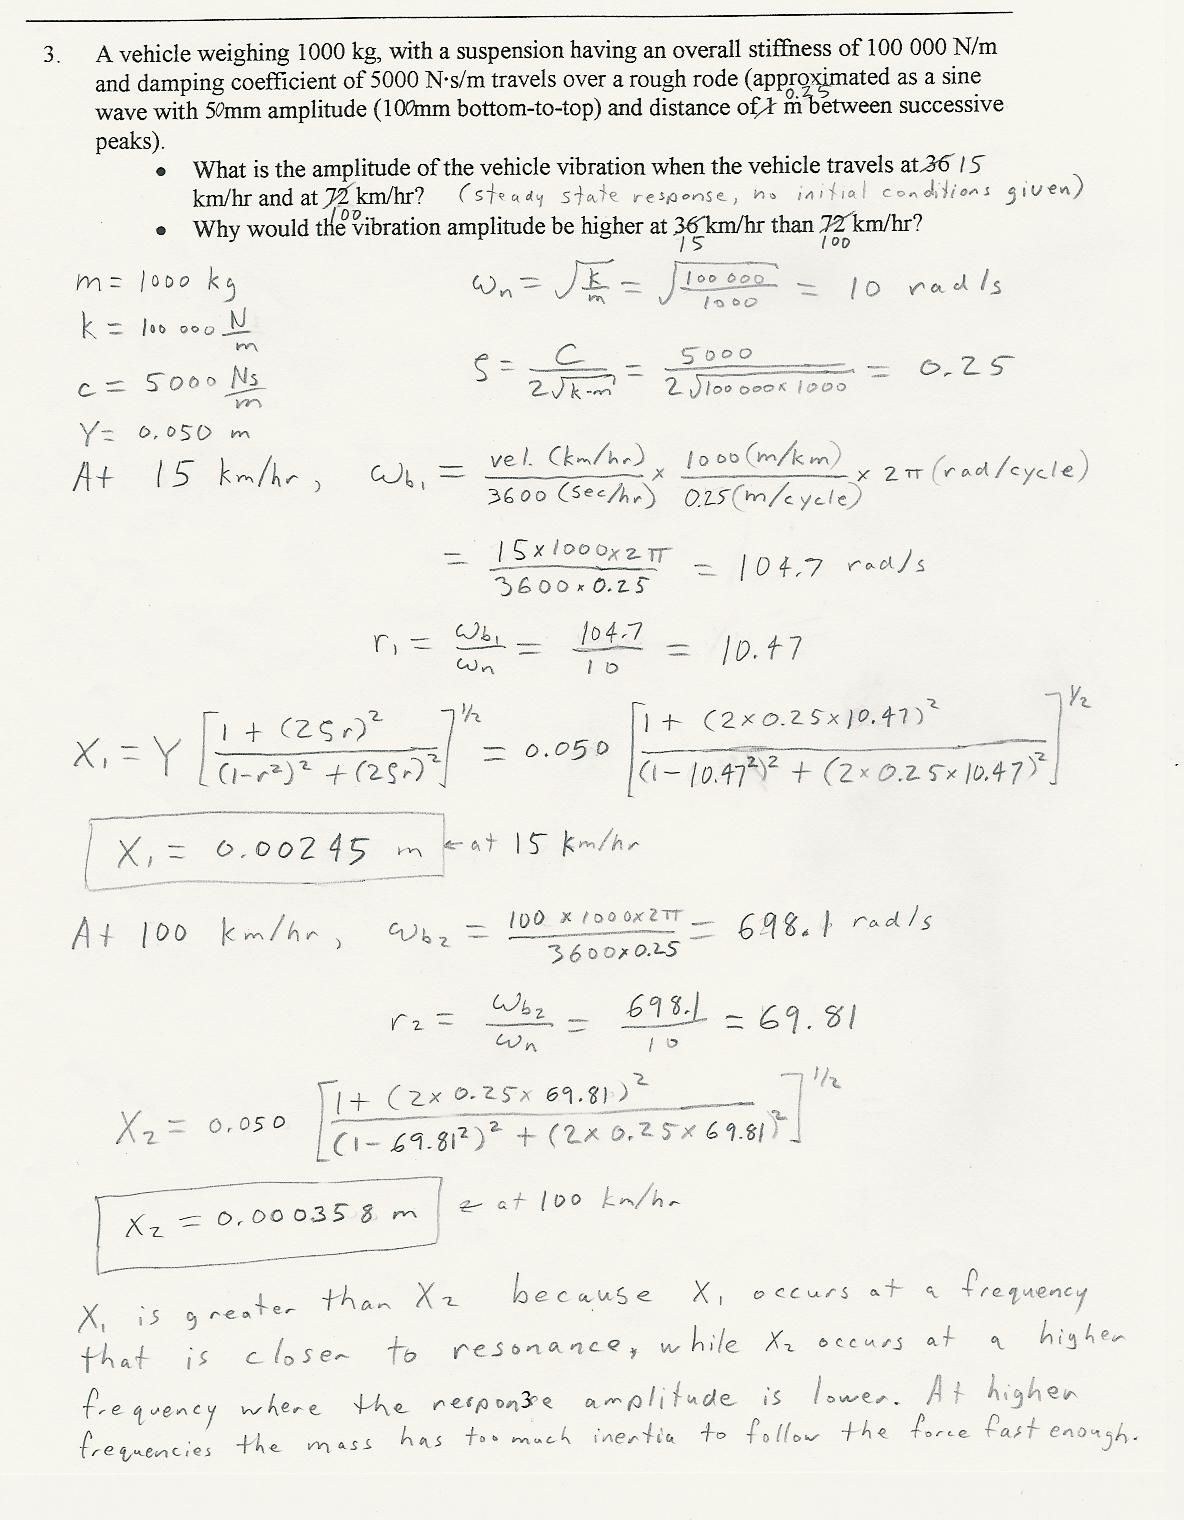 3. A vehicle weighing 1000 kg, with a suspension having an overall stiffness of 100 000 N/m
and damping coefficient of 5000 N·s/m travels over a rough rode (approximated as a sine
wave with 50mm amplitude (100mm bottom-to-top) and distance of 1 0.25 m between successive
peaks).
• What is the amplitude of the vehicle vibration when the vehicle travels at 36 15
km/hr and at 72 100 km/hr? (steady state response, no initial conditions given)
• Why would the vibration amplitude be higher at 36 15 km/hr than 72 100 km/hr?
m = 1000 kg
k = 100 000 N/m
c = 5000 Ns/m
Y = 0.050 m
ωn = √(k/m) = √(100 000/1000) = 10 rad/s
ς = C/(2√(k·m)) = 5000/(2√(100 000 x 1000)) = 0.25
At 15 km/hr, ωb1 = vel. (km/hr)/3600 (sec/hr) x 1000 (m/km)/0.25 (m/cycle) x 2π (rad/cycle)
= (15 x 1000 x 2π)/(3600 x 0.25) = 104.7 rad/s
r1 = ωb1/ωn = 104.7/10 = 10.47
X1 = Y [(1 + (2ςr)²)/((1-r²)² + (2ςr)²)]^1/2 = 0.050 [(1 + (2 x 0.25 x 10.47)²)/((1 - 10.47²)² + (2 x 0.25 x 10.47)²)]^1/2
X1 = 0.00245 m ← at 15 km/hr
At 100 km/hr, ωb2 = (100 x 1000 x 2π)/(3600 x 0.25) = 698.1 rad/s
r2 = ωb2/ωn = 698.1/10 = 69.81
X2 = 0.050 [(1 + (2 x 0.25 x 69.81)²)/((1 - 69.81²)² + (2 x 0.25 x 69.81)²)]^1/2
X2 = 0.000358 m ← at 100 km/hr
X1 is greater than X2 because X1 occurs at a frequency
that is closer to resonance, while X2 occurs at a higher
frequency where the response amplitude is lower. At higher
frequencies the mass has too much inertia to follow the force fast enough.